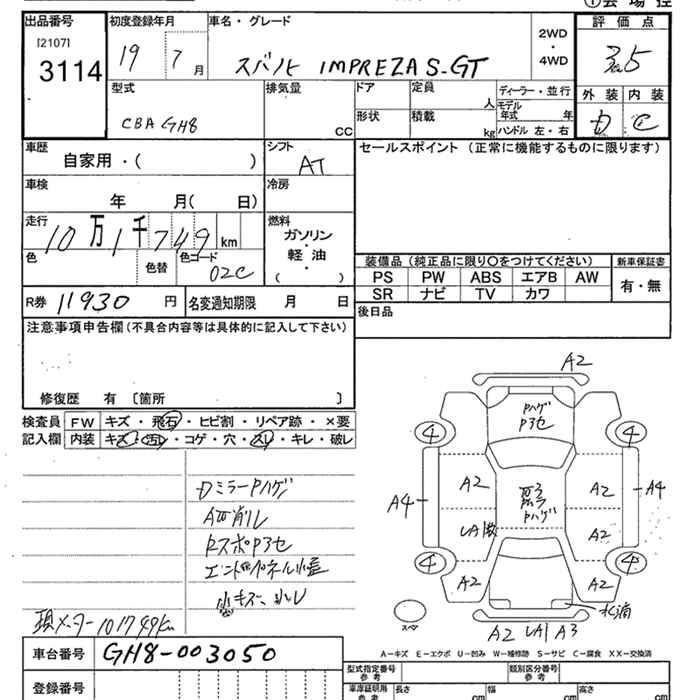 ①会場控
出品番号 初度登録年月 車名・グレード 評価点
[2107] 3114
19 7 月 スバル IMPREZA S-GT
2WD・4WD
3.5
型式 排気量 ドア 定員 ディーラー・並行 外装 内装
CBA GH8 CC 人 モデル年式 年 D C
形状 積載 kg ハンドル 左・右
車歴 自家用・( ) シフト AT セールスポイント (正常に機能するものに限ります)
車検 年 月( 日) 冷房
走行 10万1千749km 燃料 ガソリン・軽油・( )
色 色替 色コード 02C
装備品(純正品に限り○をつけてください) 新車保証書
PS PW ABS エアB AW 有・無
SR ナビ TV カワ
R券 11930 円 名変通知期限 月 日
後日品
注意事項申告欄(不具合内容等は具体的に記入して下さい)
修復歴 有 〔箇所 〕
検査員記入欄 FW キズ・飛石・ヒビ割・リペア跡・×要
内装 キズ・汚レ・コゲ・穴・スレ・キレ・破レ
DミラーPハゲ
A皿削レ
小キズ、凹レ
メーター 101749km
A2
Pハゲ
P3セ
4 4
A2 A2
A4 A4
Pハゲ
A2
4 4
A2 A2
スペア
A2 UA1 A3
A-キズ E-エクボ U-凹み W-補修跡 S-サビ C-腐食 XX-交換済
車台番号 GH8-003050
型式指定番号参考 類別区分番号参考
登録番号
車庫証明用参考 長さ cm 幅 cm 高さ cm